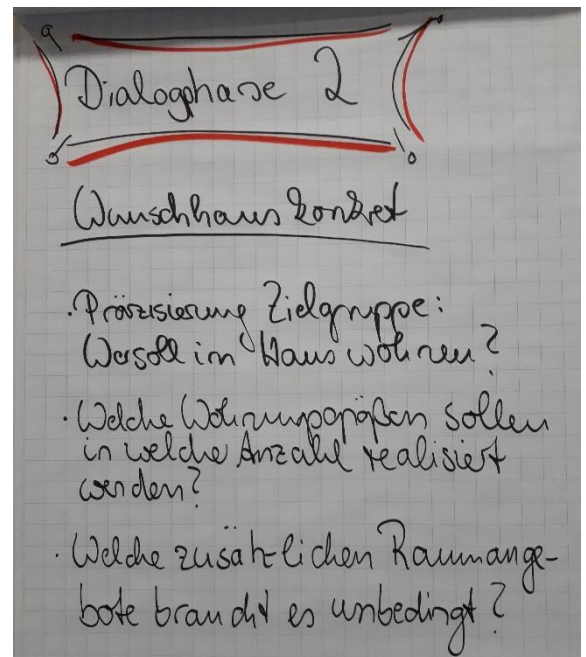 Dialogphase 2
Wunschhaus konkret
· Präzisierung Zielgruppe:
Wer soll im Haus wohnen?
· Welche Wohnungsgrößen sollen
in welche Anzahl realisiert
werden?
· Welche zusätzlichen Raumange-
bote braucht es unbedingt?